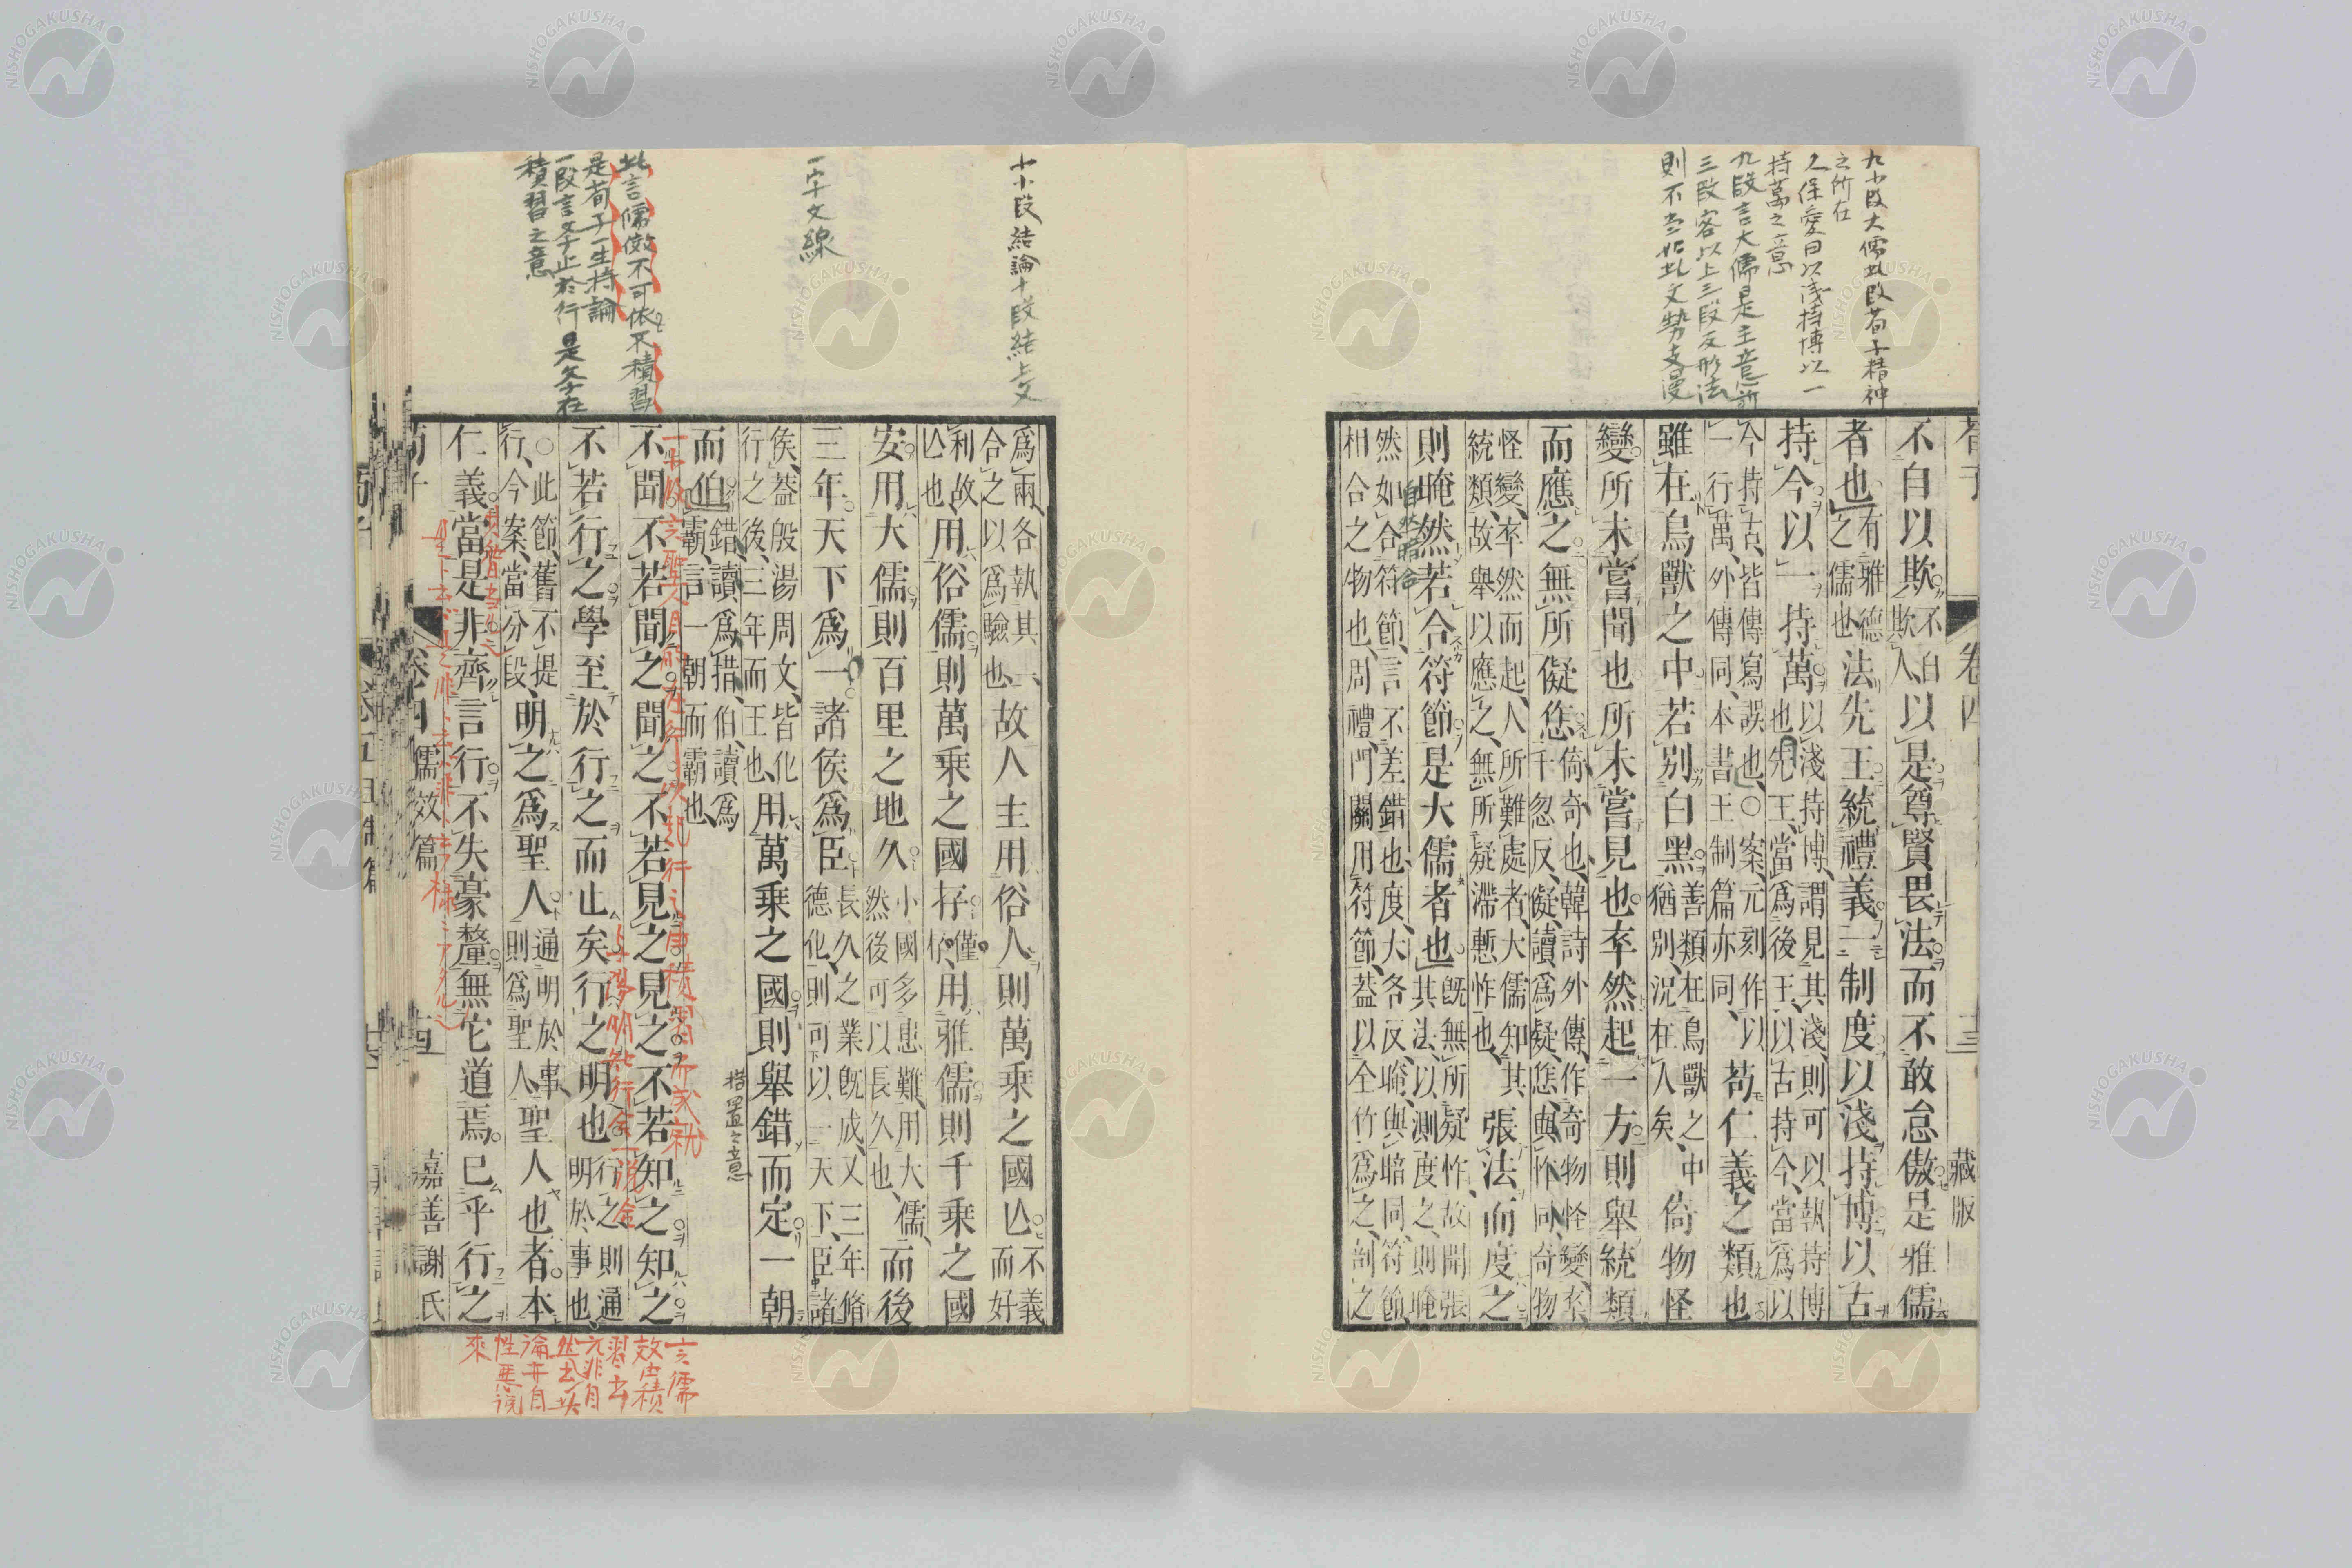 九小段大儒此段荀子精神
之所在
久保愛曰以淺持博以一
持萬之意
九段言大儒是主意前
三段客以上三段反形法
則不盡如此文勢支漫
荀子
卷四
十三
藏版
不白以欺不白欺人以是尊賢畏法而不敢怠傲是雅儒
者也有雅德之儒也法先王統禮義一制度以淺持博以古
持今以一持萬以淺持博、謂見其淺、則可以執持博也、先王、當爲後王、以古持今、當爲以
今持古、皆傳寫誤也、○案、元刻作以一行萬、外傳同、本書王制篇亦同、苟仁義之類也
雖在鳥獸之中若別白黑善類在鳥獸之中猶別、況在人矣、倚物怪
變所未嘗聞也所未嘗見也卒然起一方則舉統類
而應之無所儗㤰倚、奇也、韓詩外傳、作奇物怪變、卒千忽反、儗、讀爲疑、㤰、與怍同、奇物
怪變、卒然而起、人所難處者、大儒知其統類、故舉以應之、無所疑滯慙怍也、張法而度之
則晻然若合符節是大儒者也旣無所疑怍、故開張其法、以測度之、則晻
然如合符節、言不差錯也、度、大各反、晻、與暗同、符節、相合之物也、周禮、門關用符節、蓋以全竹爲之、剖之
自然暗合
十小段結論十段結上文
一字文線
此言儒傚不可依不積習
是荀子一生持論
一段言學止於行是文在
積習之意
爲兩、各執其一、合之以爲驗也、故人主用俗人則萬乘之國亾不義而好
利故亾也、用俗儒則萬乘之國存僅存、用雅儒則千乘之國
安用大儒則百里之地久小國多患難、用大儒、然後可以長久也、而後
三年天下爲一諸侯爲臣長久之業旣成、又三年脩德化、則可以一天下、臣諸
侯、蓋殷湯周文、皆化行之後、三年而王也、用萬乘之國則舉錯而定一朝
而伯錯、讀爲措、伯、讀爲霸、言一朝而霸也、
措置之意
不聞不若聞之聞之不若見之見之不若知之知之
不若行之學至於行之而止矣行之明也行之則通明於事也
○此節、舊不提行、今案、當分段、明之爲聖人通明於事、則爲聖人、聖人也者本
仁義當是非齊言行不失豪釐無它道焉已乎行之
荀子
卷四
儒效篇
嘉善謝氏
言儒
效由積
習
性惡說
來